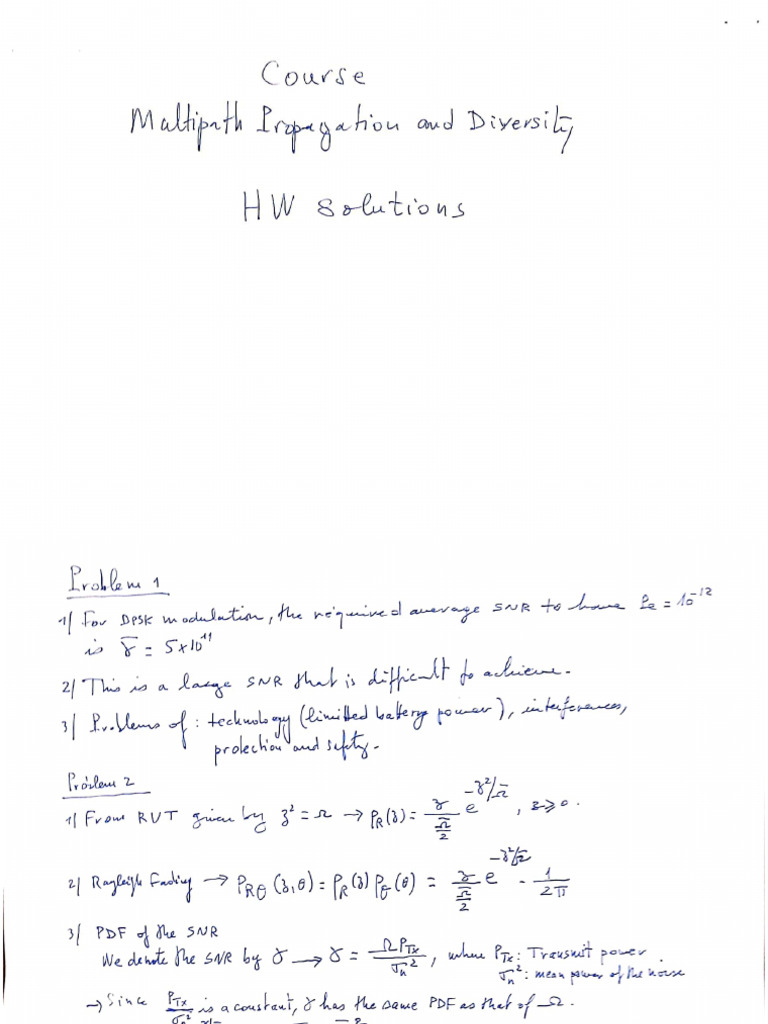 Course
Multipath Propagation and Diversity
HW Solutions
Problem 1
1/ For DPSK modulation, the required average SNR to have Pe = 10^-12
is γ̄ = 5×10^11
2/ This is a large SNR that is difficult to achieve.
3/ Problems of : technology (limitted battery power), interferences,
protection and safety.
Problem 2
1/ From RVT given by z² = Ω → P_R(z) = z/(Ω̄/2) e^(-z²/Ω̄), z ≥ 0.
2/ Rayleigh Fading → P_Rθ(z,θ) = P_R(z) P_θ(θ) = z/(Ω̄/2) e^(-z²/Ω̄) · 1/2π
3/ PDF of the SNR
We denote the SNR by γ → γ = Ω P_Tx/σ_n², where P_Tx : Transmit power.
σ_n² : mean power of the noise
→ Since P_Tx/σ_n² is a constant, γ has the same PDF as that of Ω.